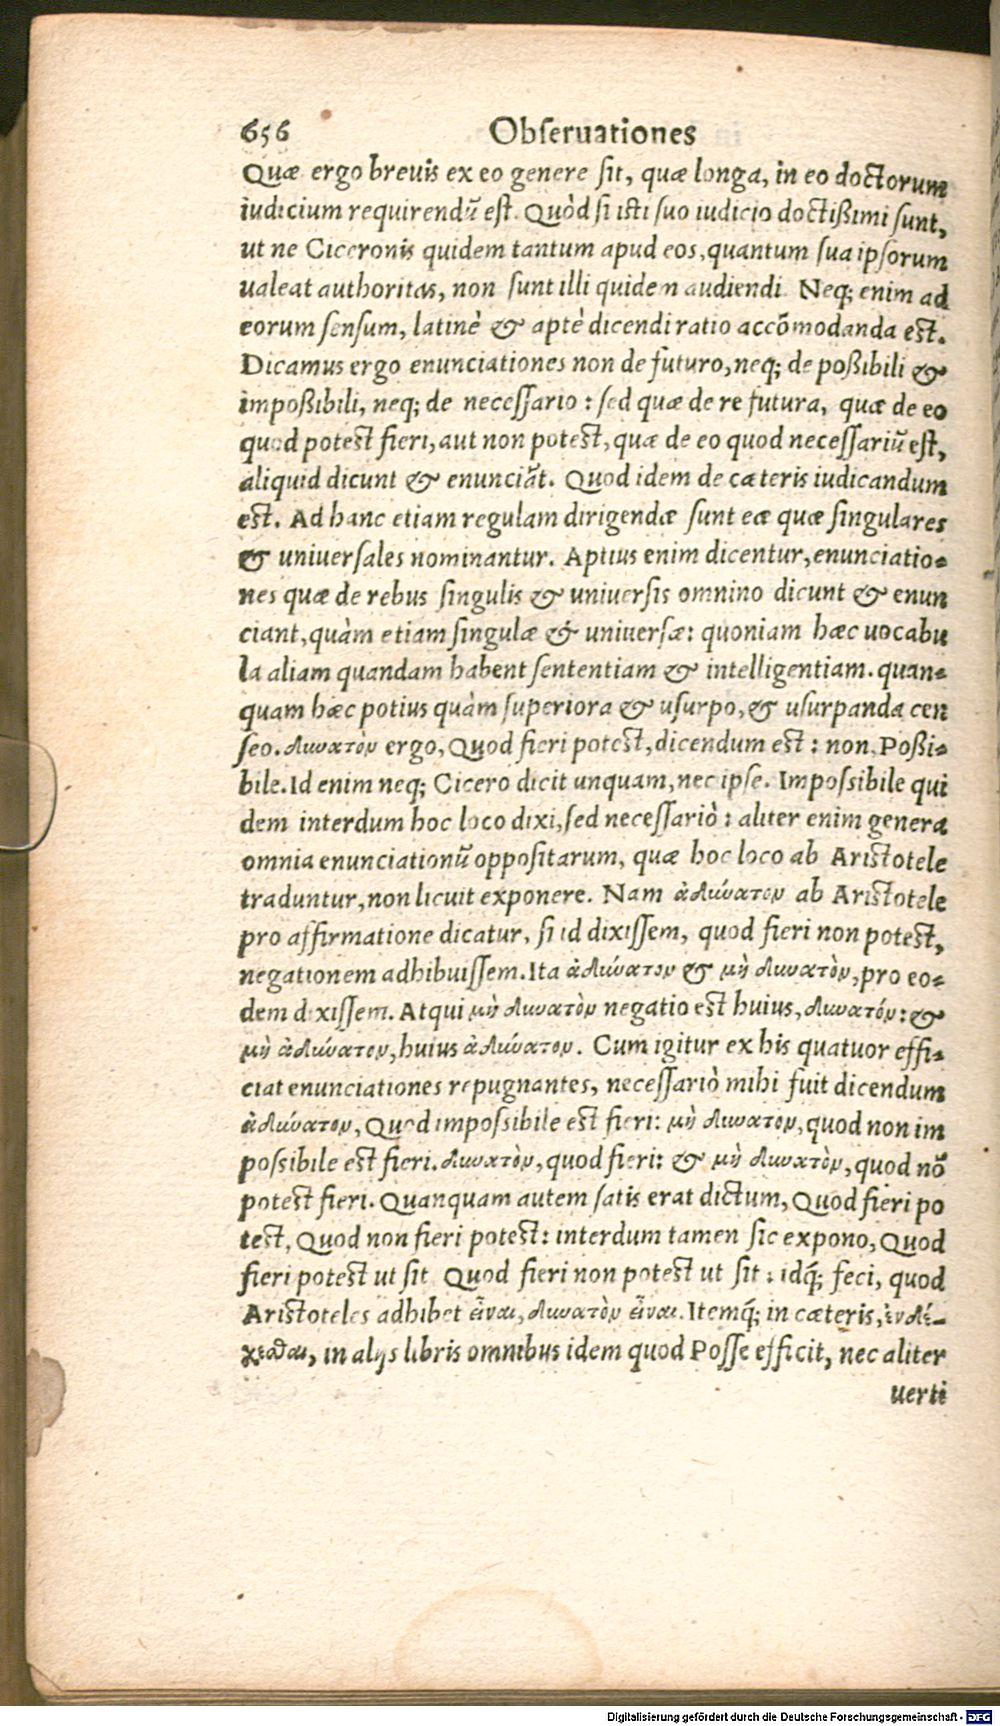 656 Obſeruationes
Quæ ergo breuis ex eo genere ſit, quæ longa, in eo doctorum
iudicium requirendũ eſt. Quòd ſi iſti ſuo iudicio doctißimi ſunt,
ut ne Ciceronis quidem tantum apud eos, quantum ſua ipſorum
ualeat authoritas, non ſunt illi quidem audiendi. Neq; enim ad
eorum ſenſum, latinè & aptè dicendi ratio accõmodanda eſt.
Dicamus ergo enunciationes non de futuro, neq; de poßibili &
impoßibili, neq; de neceſſario: ſed quæ de re futura, quæ de eo
quod poteſt fieri, aut non poteſt, quæ de eo quod neceſſariũ eſt,
aliquid dicunt & enunciãt. Quod idem de cæteris iudicandum
eſt. Ad hanc etiam regulam dirigendæ ſunt eæ quæ ſingulares
& uniuerſales nominantur. Aptius enim dicentur, enunciatio⸗
nes quæ de rebus ſingulis & uniuerſis omnino dicunt & enun
ciant, quàm etiam ſingulæ & uniuerſæ: quoniam hæc uocabu
la aliam quandam habent ſententiam & intelligentiam. quan⸗
quam hæc potius quàm ſuperiora & uſurpo, & uſurpanda cen
ſeo. δυνατὸν ergo, Quod fieri poteſt, dicendum eſt: non, Poßi⸗
bile. Id enim neq; Cicero dicit unquam, nec ipſe. Impoſsibile qui
dem interdum hoc loco dixi, ſed neceſſariò: aliter enim genera
omnia enunciationũ oppoſitarum, quæ hoc loco ab Ariſtotele
traduntur, non licuit exponere. Nam ἀδύνατον ab Ariſtotele
pro affirmatione dicatur, ſi id dixiſſem, quod fieri non poteſt,
negationem adhibuiſſem. Ita ἀδύνατον & μὴ δυνατὸν, pro eo⸗
dem dixiſſem. Atqui μὴ δυνατὸν negatio eſt huius, δυνατόν: &
μὴ ἀδύνατον, huius ἀδύνατον. Cum igitur ex his quatuor effi⸗
ciat enunciationes repugnantes, neceſſariò mihi fuit dicendum
ἀδύνατον, Quod impoſsibile eſt fieri: μὴ δυνατον, quod non im
poſsibile eſt fieri. δυνατὸν, quod fieri: & μὴ δυνατὸν, quod nõ
poteſt fieri. Quanquam autem ſatis erat dictum, Quod fieri po
teſt, Quod non fieri poteſt: interdum tamen ſic expono, Quod
fieri poteſt ut ſit. Quod fieri non poteſt ut ſit: idq́; feci, quod
Ariſtoteles adhibet εἶναι, δυνατὸν εἶναι. Itemq́; in cæteris, ἐνδέ-
χεσθαι, in alijs libris omnibus idem quod Poſſe efficit, nec aliter
uerti
Digitalisierung gefördert durch die Deutsche Forschungsgemeinschaft - DFG